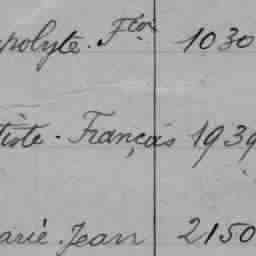 polyte. Fçois 1030
tiste. Français 1939
arie. Jean 2150